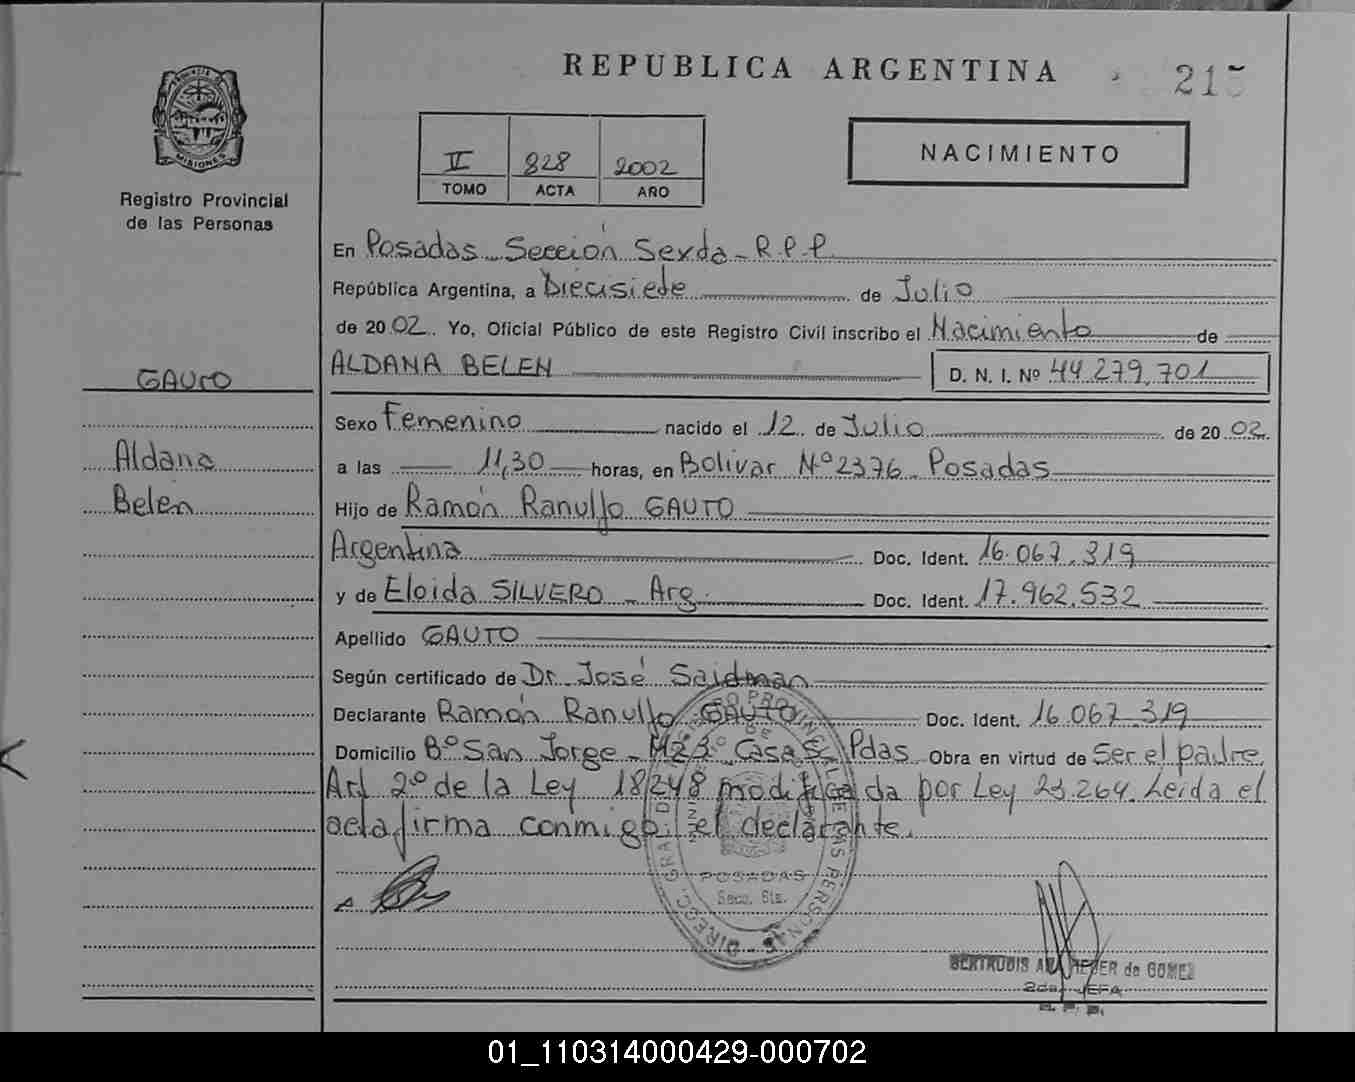 REPUBLICA ARGENTINA
21
MISIONES
Registro Provincial
de las Personas
II 828 2002
TOMO ACTA AÑO
NACIMIENTO
En Posadas Sección Sexta - R.P.P.
República Argentina, a Diecisiete de Julio
de 2002. Yo, Oficial Público de este Registro Civil inscribo el Nacimiento de
ALDANA BELEN D. N. I. Nº 44.279.701
GAUTO
Aldana
Belén
Sexo Femenino nacido el 12 de Julio de 2002.
a las 11,30 horas, en Bolívar Nº 2376 - Posadas
Hijo de Ramón Ranulfo GAUTO
Argentina Doc. Ident. 16.067.319
y de Eloida SILVERO - Arg. Doc. Ident. 17.962.532
Apellido GAUTO
Según certificado de Dr. José Saidman
Declarante Ramón Ranulfo GAUTO Doc. Ident. 16.067.319
Domicilio Bº San Jorge - Casa Pdas. Obra en virtud de Ser el padre
Art 2º de la Ley 18248 modificada por Ley 23.264. Leída el
acta firma conmigo el declarante.
POSADAS
Secc. 6ta.
GERTRUDIS de GOMEZ
2da. JEFA
R. P. P.
01_110314000429-000702